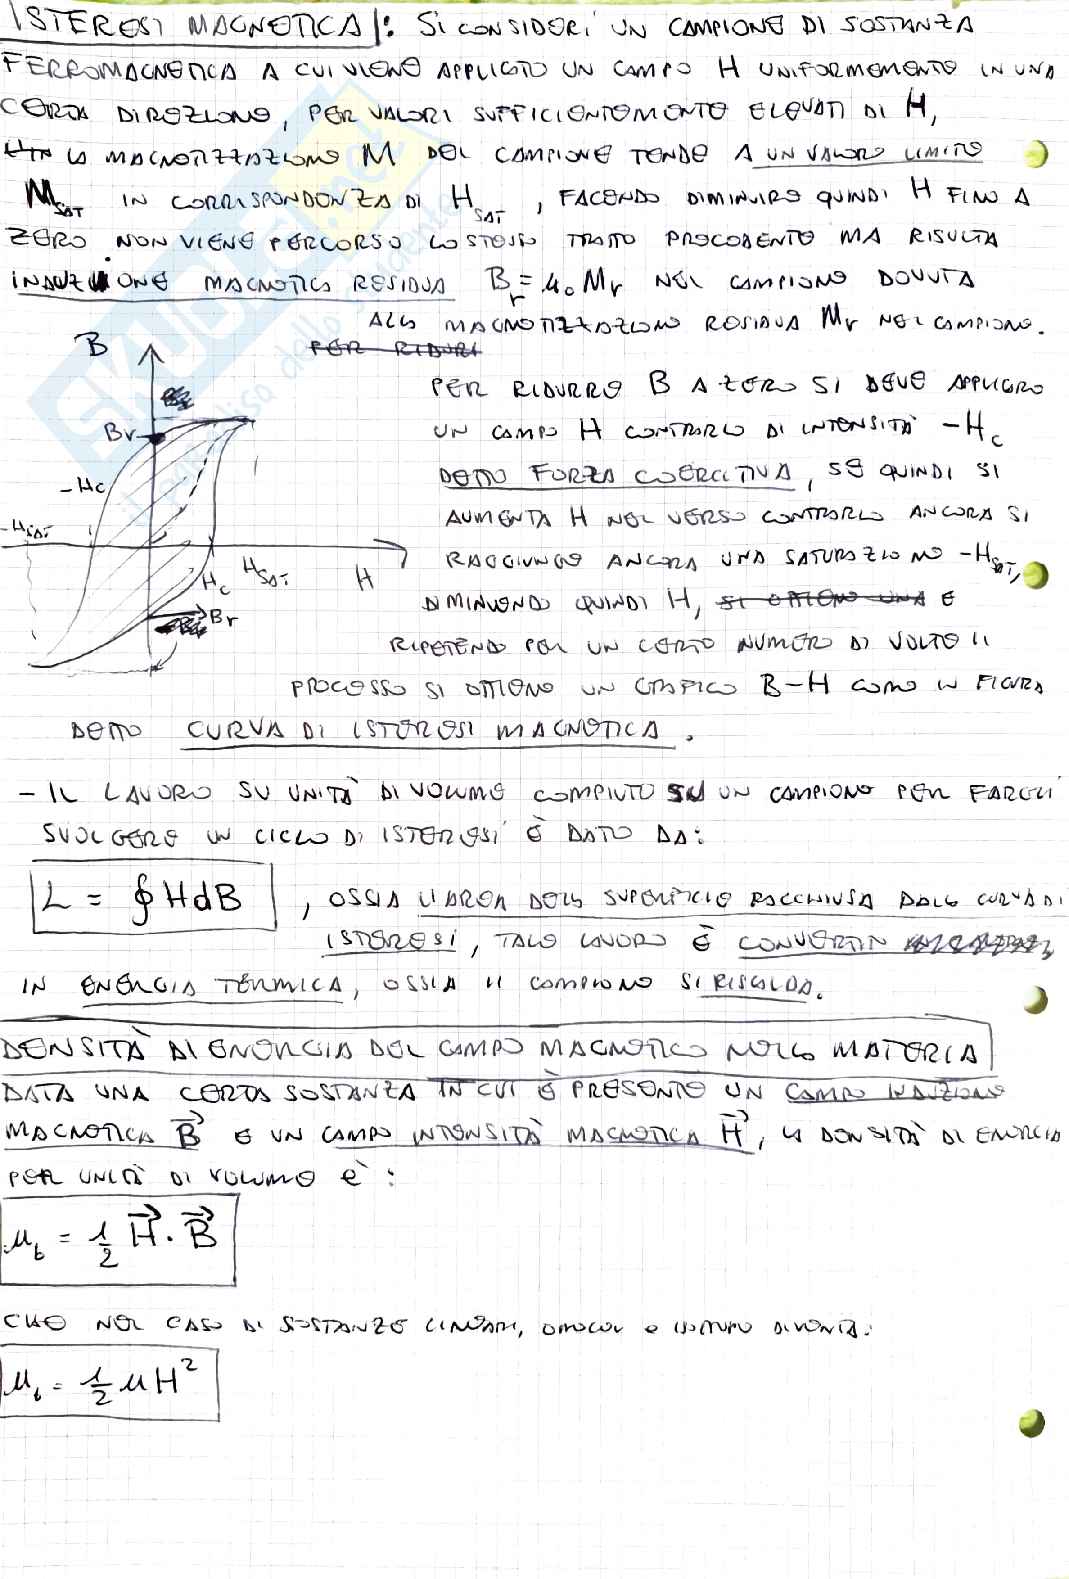 ISTERESI MAGNETICA: SI CONSIDERI UN CAMPIONE DI SOSTANZA
FERROMAGNETICA A CUI VIENE APPLICATO UN CAMPO H UNIFORMEMENTE IN UNA
CERTA DIREZIONE, PER VALORI SUFFICIENTEMENTE ELEVATI DI H,
LA MAGNETIZZAZIONE M DEL CAMPIONE TENDE A UN VALORE LIMITE
M_SAT IN CORRISPONDENZA DI H_SAT, FACENDO DIMINUIRE QUINDI H FINO A
ZERO NON VIENE PERCORSO LO STESSO TRATTO PRECEDENTE MA RISULTA
INDUZIONE MAGNETICA RESIDUA B_r = μ_0 M_r NEL CAMPIONE DOVUTA
ALLA MAGNETIZZAZIONE RESIDUA M_r NEL CAMPIONE.
PER RIDURI
PER RIDURRE B A ZERO SI DEVE APPLICARE
UN CAMPO H CONTRARIO DI INTENSITÀ -H_c
DETTO FORZA COERCITIVA, SE QUINDI SI
AUMENTA H NEL VERSO CONTRARIO ANCORA SI
RAGGIUNGE ANCORA UNA SATURAZIONE -H_SAT,
DIMINUENDO QUINDI H, SI OTTIENE UNA E
RIPETENDO PER UN CERTO NUMERO DI VOLTE IL
PROCESSO SI OTTIENE UN GRAFICO B-H COME IN FIGURA
DETTO CURVA DI ISTERESI MAGNETICA.
B
Br
-Hc
-H_SAT
H_c
H_SAT
H
Br
- IL LAVORO SU UNITÀ DI VOLUME COMPIUTO SU UN CAMPIONE PER FARGLI
SVOLGERE UN CICLO DI ISTERESI È DATO DA:
L = ∮ HdB , OSSIA L'AREA DELLA SUPERFICIE RACCHIUSA DALLA CURVA DI
ISTERESI, TALE LAVORO È CONVERTITA
IN ENERGIA TERMICA, OSSIA IL CAMPIONE SI RISCALDA.
DENSITÀ DI ENERGIA DEL CAMPO MAGNETICO NELLA MATERIA
DATA UNA CERTA SOSTANZA IN CUI È PRESENTE UN CAMPO INDUZIONE
MAGNETICA B⃗ E UN CAMPO INTENSITÀ MAGNETICA H⃗, LA DENSITÀ DI ENERGIA
PER UNITÀ DI VOLUME È:
μ_b = 1/2 H⃗ · B⃗
CHE NEL CASO DI SOSTANZE LINEARI, OMOGEN E ISOTROPE DIVENTA:
μ_b = 1/2 μH²
SKUOLA.net
il paradiso dello studente